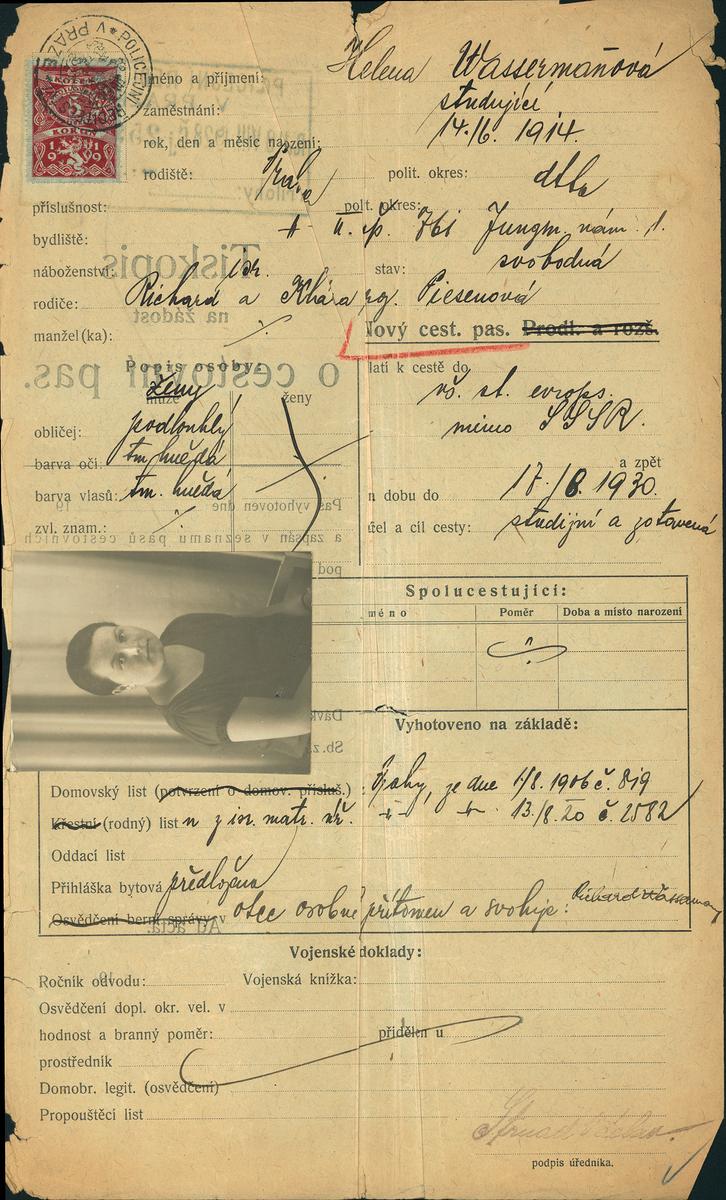 POLICEJNÍ V PRAZE
KOLEK
5
KORUN
1919
Jméno a příjmení: Helena Wassermanová
zaměstnání: studující
rok, den a měsíc narození: 14./6. 1914.
rodiště: Praha polit. okres: dtto
příslušnost: polit. okres:
bydliště: II. čp. 761 Jungm. nám. 1.
náboženství: isr. stav: svobodná
rodiče: Richard a Klára rz. Piesenová
manžel(ka): ./.
Nový cest. pas. Prodl. a rozš.
Popis osoby: Platí k cestě do
ženy vš. st. evrops.
muže ženy
obličej: podlouhlý mimo SSSR.
barva očí: tm. hnědá a zpět
barva vlasů: tm. hnědá na dobu do 17./8. 1930.
zvl. znam.: ./. účel a cíl cesty: studijní a zotavená
Spolucestující:
Jméno Poměr Doba a místo narození
Vyhotoveno na základě:
Domovský list (potvrzení o domov. přísluš.) : Prahy, ze dne 1/8. 1906 č. 819
Křestní (rodný) list n. z isr. matr. úř. 13./8. 20 č. 2582
Oddací list
Přihláška bytová předložena
Osvědčení berní správy v otec osobně přítomen a svoluje: Richard Wassermann
Vojenské doklady:
Ročník odvodu: Vojenská knížka:
Osvědčení dopl. okr. vel. v
hodnost a branný poměr: přidělen u
prostředník
Domobr. legit. (osvědčení)
Propouštěcí list
podpis úředníka.
Tiskopis
na žádost
o cestovní pas.
Pas vyhotoven dne 19
a zapsán v seznamu pasů cestovních
pod
Ad acta.
19